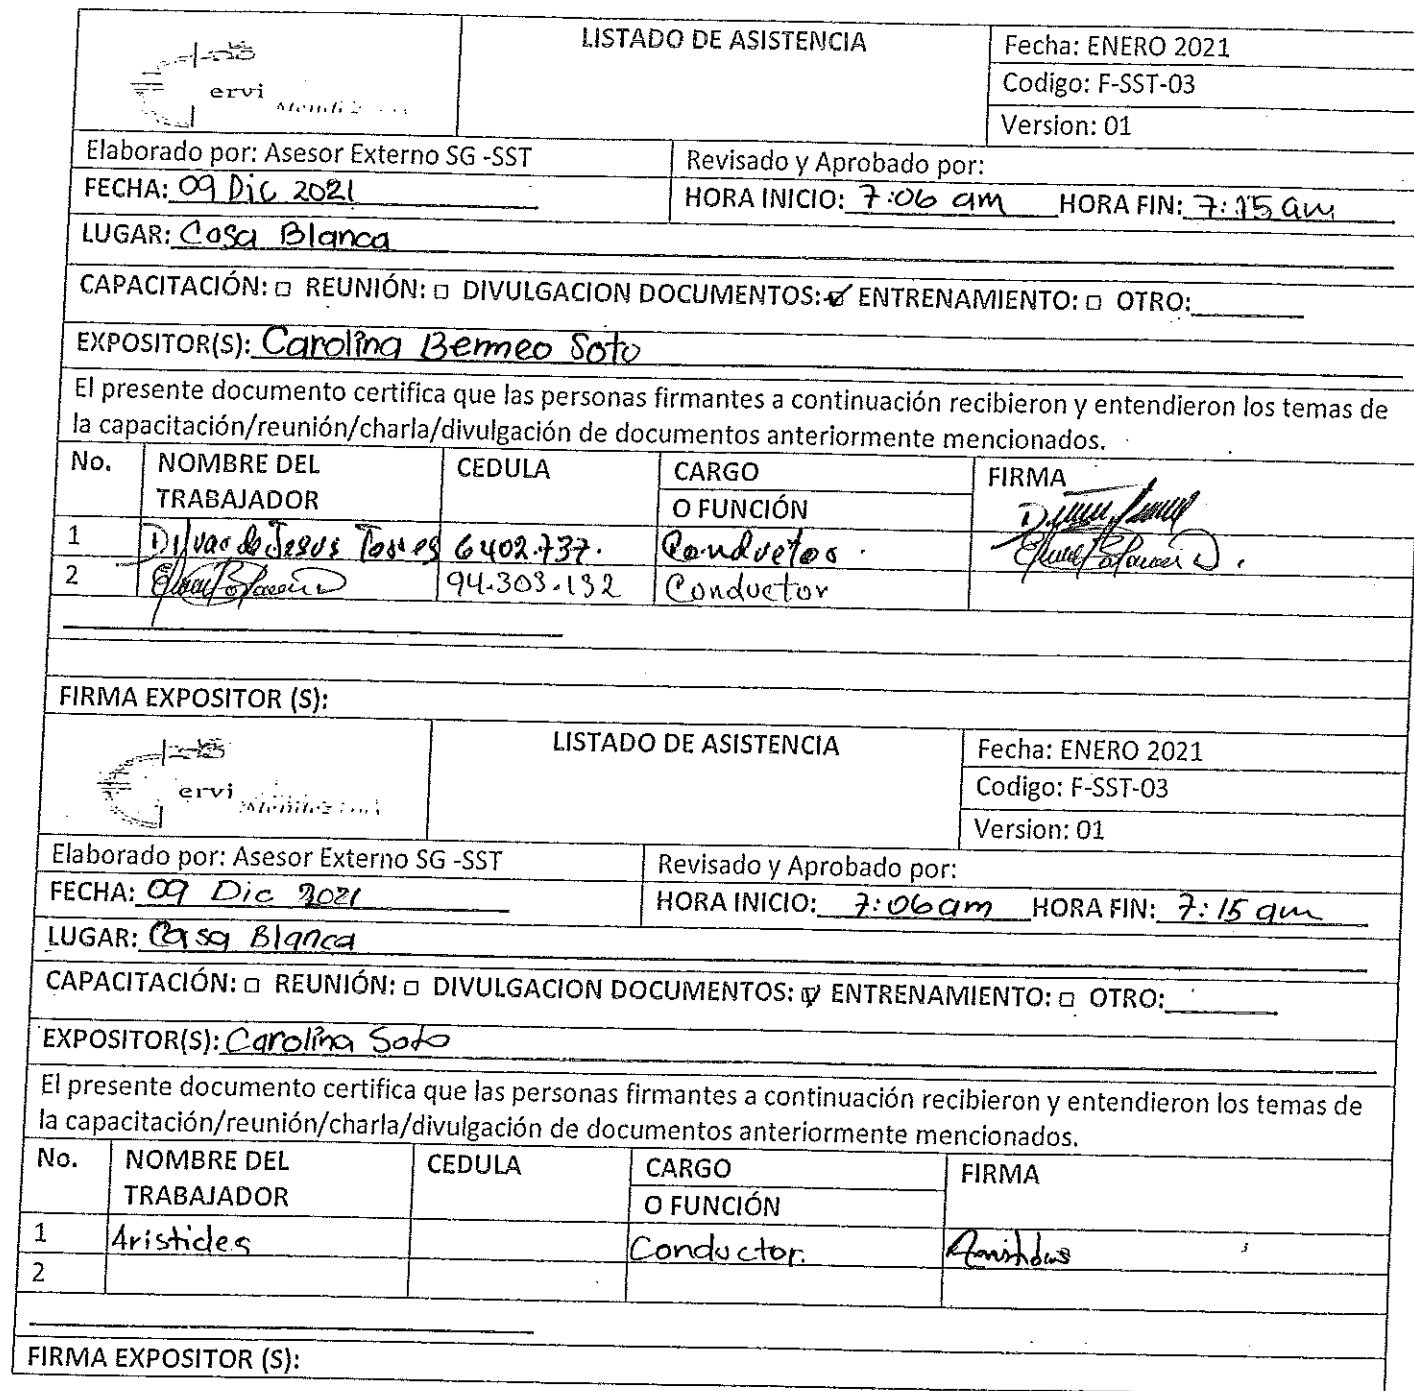 ervi
LISTADO DE ASISTENCIA
Fecha: ENERO 2021
Codigo: F-SST-03
Version: 01
Elaborado por: Asesor Externo SG -SST
Revisado y Aprobado por:
FECHA: 09 Dic 2021
HORA INICIO: 7:06 am HORA FIN: 7:15 am
LUGAR: Casa Blanca
CAPACITACIÓN: □ REUNIÓN: □ DIVULGACION DOCUMENTOS: ☑ ENTRENAMIENTO: □ OTRO:
EXPOSITOR(S): Carolina Bermeo Soto
El presente documento certifica que las personas firmantes a continuación recibieron y entendieron los temas de
la capacitación/reunión/charla/divulgación de documentos anteriormente mencionados.
No. NOMBRE DEL TRABAJADOR CEDULA CARGO O FUNCIÓN FIRMA
1 de Jesus Torres 6402.737. Conductor.
2 94.303.132 Conductor
FIRMA EXPOSITOR (S):
ervi
LISTADO DE ASISTENCIA
Fecha: ENERO 2021
Codigo: F-SST-03
Version: 01
Elaborado por: Asesor Externo SG -SST
Revisado y Aprobado por:
FECHA: 09 Dic 2021
HORA INICIO: 7:06 am HORA FIN: 7:15 am
LUGAR: Casa Blanca
CAPACITACIÓN: □ REUNIÓN: □ DIVULGACION DOCUMENTOS: ☑ ENTRENAMIENTO: □ OTRO:
EXPOSITOR(S): Carolina Soto
El presente documento certifica que las personas firmantes a continuación recibieron y entendieron los temas de
la capacitación/reunión/charla/divulgación de documentos anteriormente mencionados.
No. NOMBRE DEL TRABAJADOR CEDULA CARGO O FUNCIÓN FIRMA
1 Aristides Conductor. Aristides
2
FIRMA EXPOSITOR (S):